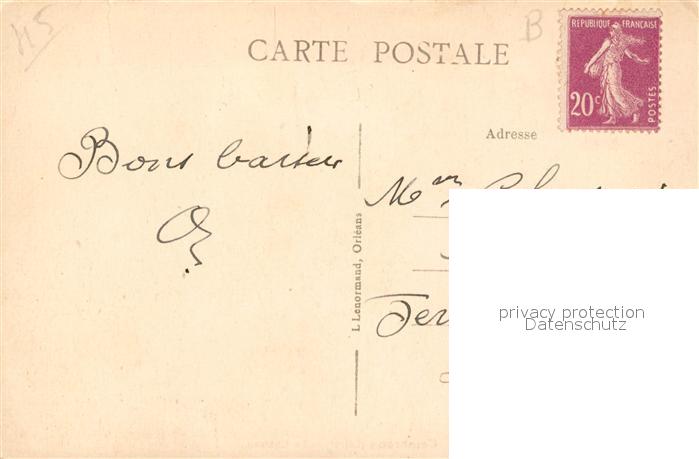 45
B
CARTE POSTALE
REPUBLIQUE FRANÇAISE
20c
POSTES
Adresse
Bons baisers
L Lenormand, Orléans
privacy protection
Datenschutz